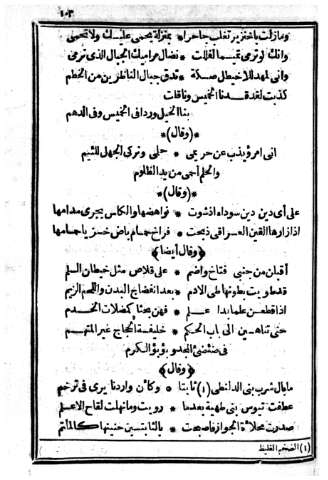 ١٠٣
ومازلت ياخنزير تغلب جاحرا * بمنزلة يحمى عليك ولا تحمى
وانك لو ترمى تميما لفللت * نضال مراميك الجبال الذى ترمى
وانى لمهد للاخيطل صكة * تدق جبال الناظرين من الخطم
كذبت لقد قدنا الخميس وناقات
بنا الخيل ورداف الخميس وفى الدهم
*(وقال)*
انى امرؤ يذب عن حريمى * حلمى وتركى الجهل للئيم
والحلم أحمى من يد الظلوم
*(وقال)*
على أى دين دين سوداء اذ شوت * نواهضها والكاس يجرى مدامها
اذا زارها القين العراقى ذبحت * فراخ حمام باض خزيا حمامها
*(وقال أيضا)*
أقبلن من جنبى فتاخ واضم * على قلاص مثل خيطان السلم
قد طويت بطونها طى الادم * بعد انفضاج البدن واللحم الزيم
اذا قطعن علما بدا علم * فهن بحثا كمضلات الخدم
حتى تناهين الى باب الحكم * خليفة الحجاج غير المتهم
فى ضئضئ المجد وبؤبؤ الكرم
*(وقال)*
ما بال شرب بنى الدلنطى (١) ثابتا * وكأن واردنا يرى فى ترخم
عطفت تيوس بنى طهية بعدما * رويت وما نهلت لقاح الاعلم
صدرت محلأة الجواز فأصبحت * بالثابتين حنينها كالمأتم
(١) الضخم الغليظ